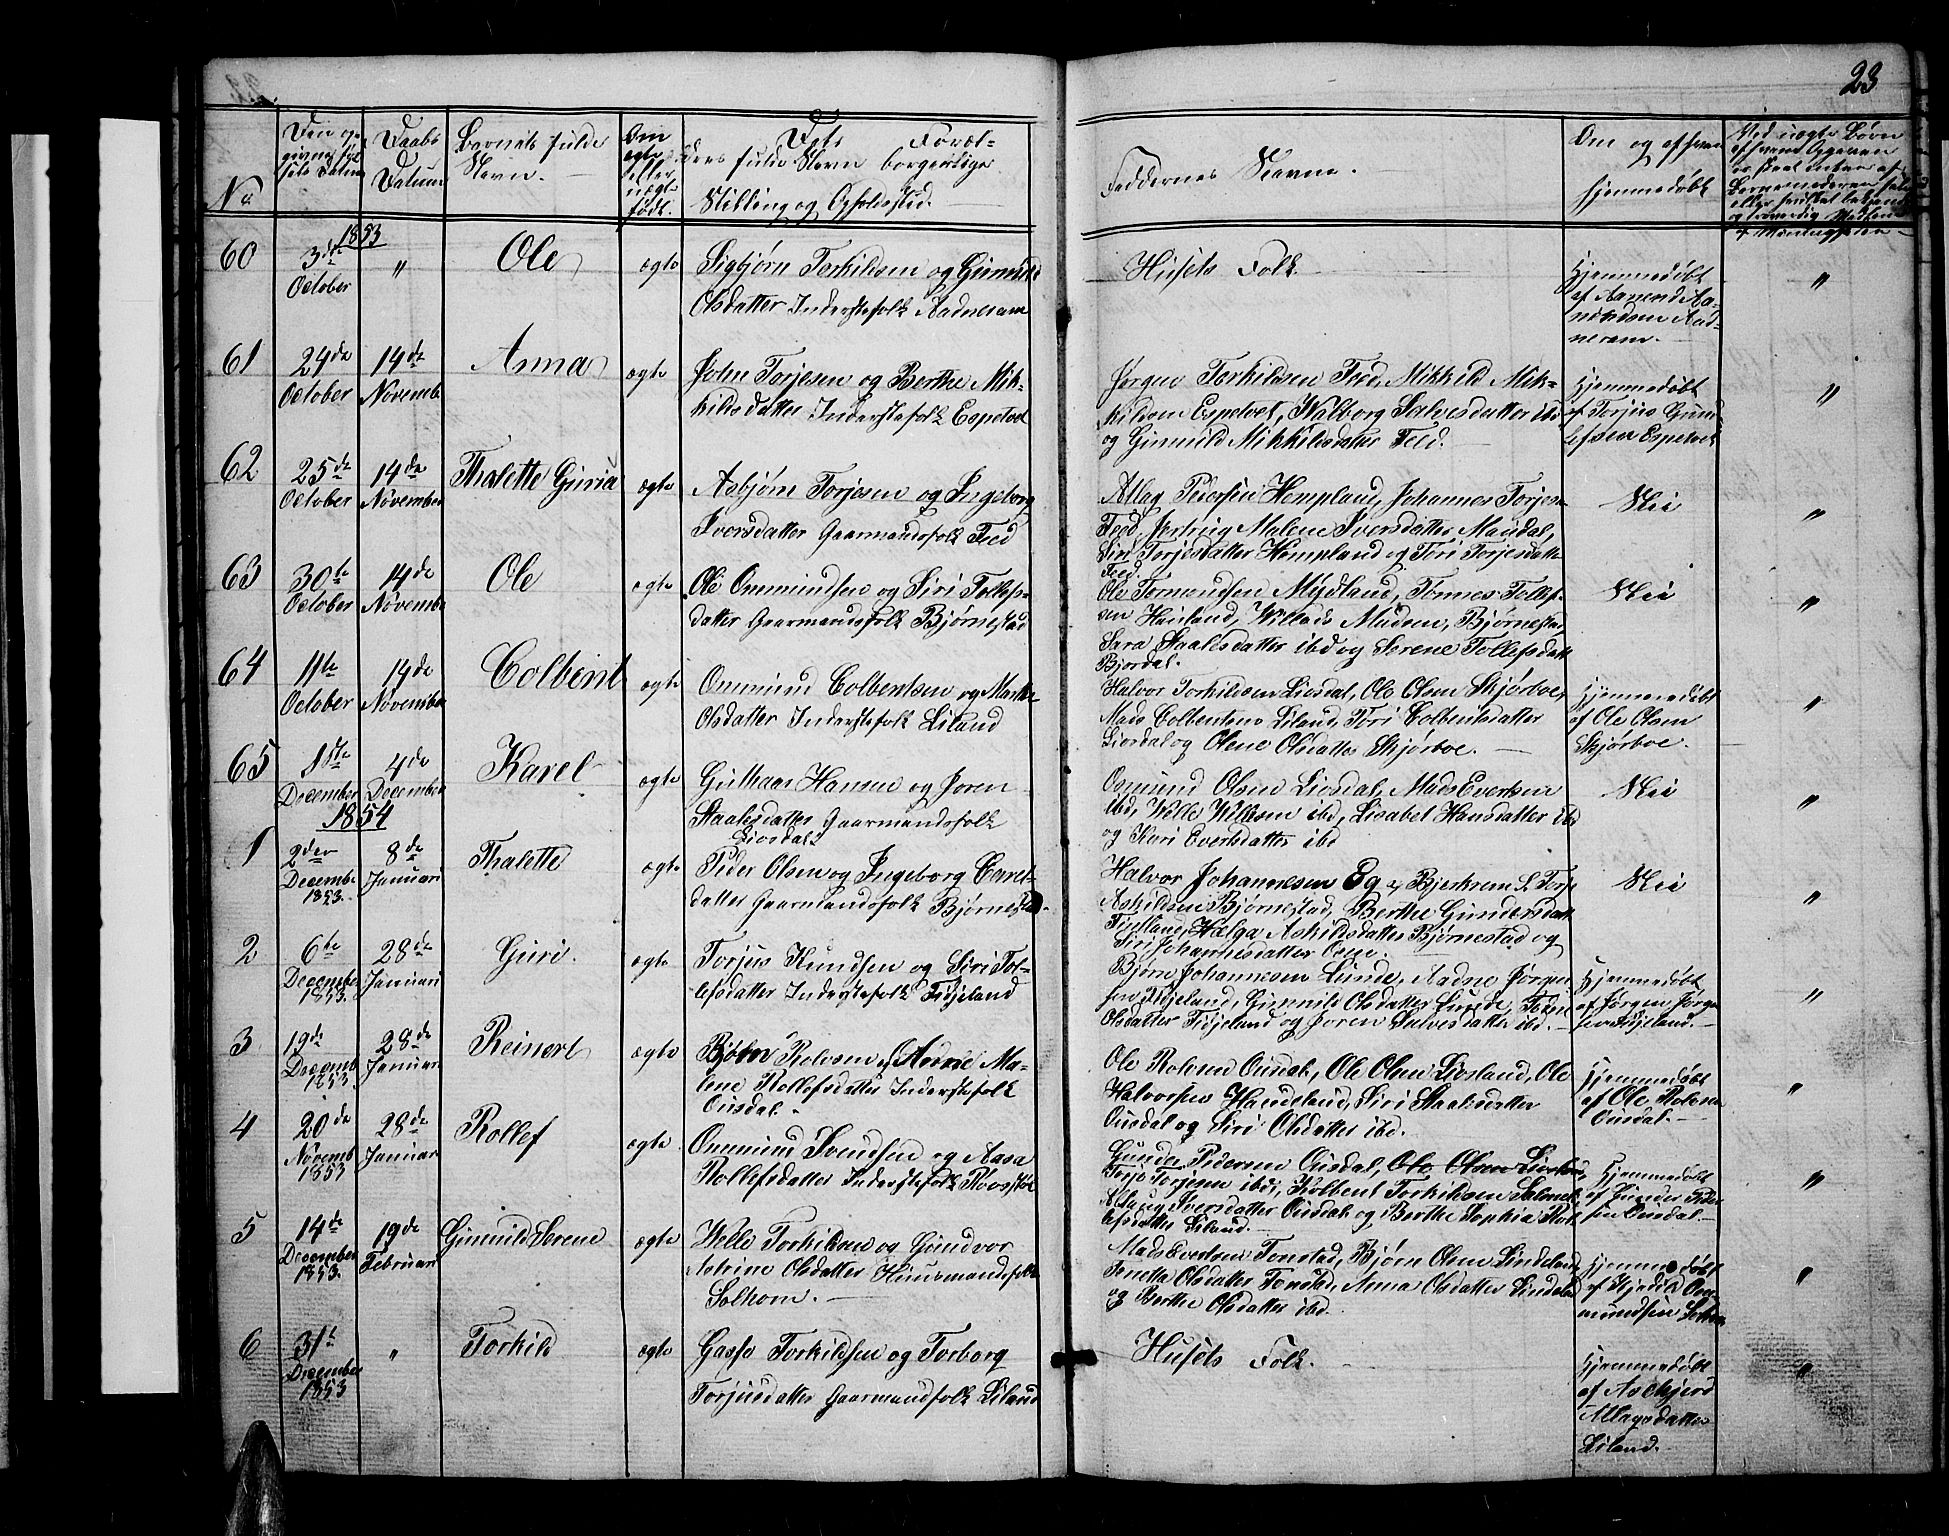 23
No
Den opgivne Fødsels Datum
Daabs Datum
Barnets fulde Navn.
Om ægte eller uægte født.
Dets Forældres fulde Navn borgerlige Stilling og Opholdssted.
Faddernes Navne.
Om og af hvem hjemmedøbt
1853
60
3die October
"
Ole
ægte
Sigbjørn Terkildsen og Gunild
Olsdatter Inderstefolk Aadneram
Husets Folk
Hjemmedøbt
af Aanend Aa-
nendsen Aad-
neram.
"
61
24de October
14de Novemb
Anna
ægte
John Torjesen og Berthe Mik-
kildsdatter Inderstefolk Espetvet
Jørgen Torkildsen Feed, Mikkild Mik-
kildsen Espetvet, Walborg Salvesdatter ibd
og Gunuild Mikkildsdatter Feed.
Hjemmedøbt
af Torjus Gund
lefsen Espetvet
"
62
25de October
14de November
Thalette Guria
ægte
Asbjørn Torjesen og Ingeborg
Iversdatter Gaarmandsfolk Feed
Atlag Pedersen Hompland, Johannes Torjesen
Feed, Malene Iversdatter Mandal,
Siri Torjesdatter Hompland og Tori Torjesdatte
Feed.
Nei
"
63
30te October
14de Novembe
Ole
ægte
Ole Ommundsen og Siri Tollefs-
datter Gaarmandsfolk Bjørnestad
Ole Tormundsen Mydland, Tønnes Tollef-
sen Hauland, Willads Madsen, Bjørnestad,
Sara Staalesdatter ibd og Serene Tollefsdatt
Bjordal.
Nei
"
64
11te October
14de November
Colbent
ægte
Ommund Colbentsen og Marthe
Olsdatter Inderstefolk Liland
Halvor Torkildsen Liosdal, Ole Olsen Skjørboe,
Mads Colbentsen Liland, Tori Colbentsdatter
Liosdal og Olene Olsdatter Skjørboe.
Hjemmedøbt
af Ole Olsen
Skjørboe.
"
65
1ste December
4de December
Karel
ægte
Guttaar Hansen og Joren
Staalesdatter Gaarmandsfolk
Liosdal
Osmund Olsen Liosdal, Mads Evertsen
ibd, Welle Willesen ibd, Lisabet Hansdatter ibd
og Kari Evertsdatter ibd
Nei
"
1854
1
2den Decembe 1853.
8de Januari
Thalette
ægte
Peder Olsen og Ingeborg Carel-
datter Gaarmandsfolk Bjørnestad.
Halvor Johannesen Eg
Askildsen Bjørnestad, Berthe Gundersdatt
Fintland, Helga Askildsdatter Bjørnestad og
Siri Johannesdatter Osen.
Nei
"
2
6te December 1853.
28de Januari
Guri.
ægte
Torjus Knudsen og Siri Tol-
lefsdatter Inderstefolk Tidjeland
Bjørn Johannesen Lunde, Aadne Jørgen
sen Tidjeland, Gunnild Olsdatter Lunde,
Olsdatter Tidjeland og Joren Salvesdatter ibd.
Hjemmedøbt
af Jørgen Jørgen
sen Tidjeland.
"
3
19de Decemb 1853.
28de Januari
Reinert
ægte
Bjørn Rolvsen og Andrie Ma-
lene Rollefsdatter Inderstefolk
Ousdal.
Ole Rolvsen Ousdal, Ole Olsen Liosland, Ole
Halvorsen Haudeland, Siri Staalesdatter
Ousdal og Siri Olsdatter ibd.
Hjemmedøbt
af Ole Rolvsen
Ousdal.
"
4
20de Novemb 1853
28de Januari
Rollef
ægte
Ommund Svendsen og Aasa
Rollefsdatter Inderstefolk
Gunder Pedersen Ousdal, Ole Olsen Liosland,
Terje Torjesen ibd, Kolbent Torkildsen
Iversdatter Ousdal og Berthe Sophia Rol
lefsdatter Liland.
Hjemmedøbt
af Gunder Peder
sen Ousdal.
"
5
14de December 1853.
19de Februari
Gunuild Serene
ægte
Welle Torkildsen og Gundvor
Astrine Olsdatter Huusmandsfolk
Solhom.
Mads Evertsen Tonstad, Bjørn Olsen Lindeland,
Tenetta Olsdatter Tonstad, Anna Olsdatter Lindeland
og Berthe Olsdatter ibd.
Hjemmedøbt
af Om-
mundsen Solhom
"
6
31te December 1853
"
Torkild
ægte
Gasse Torkildsen og Torborg
Torjusdatter Gaarmandsfolk Liland
Husets Folk.
Hjemmedøbt
af
Atlagsdatter
Liland.
"